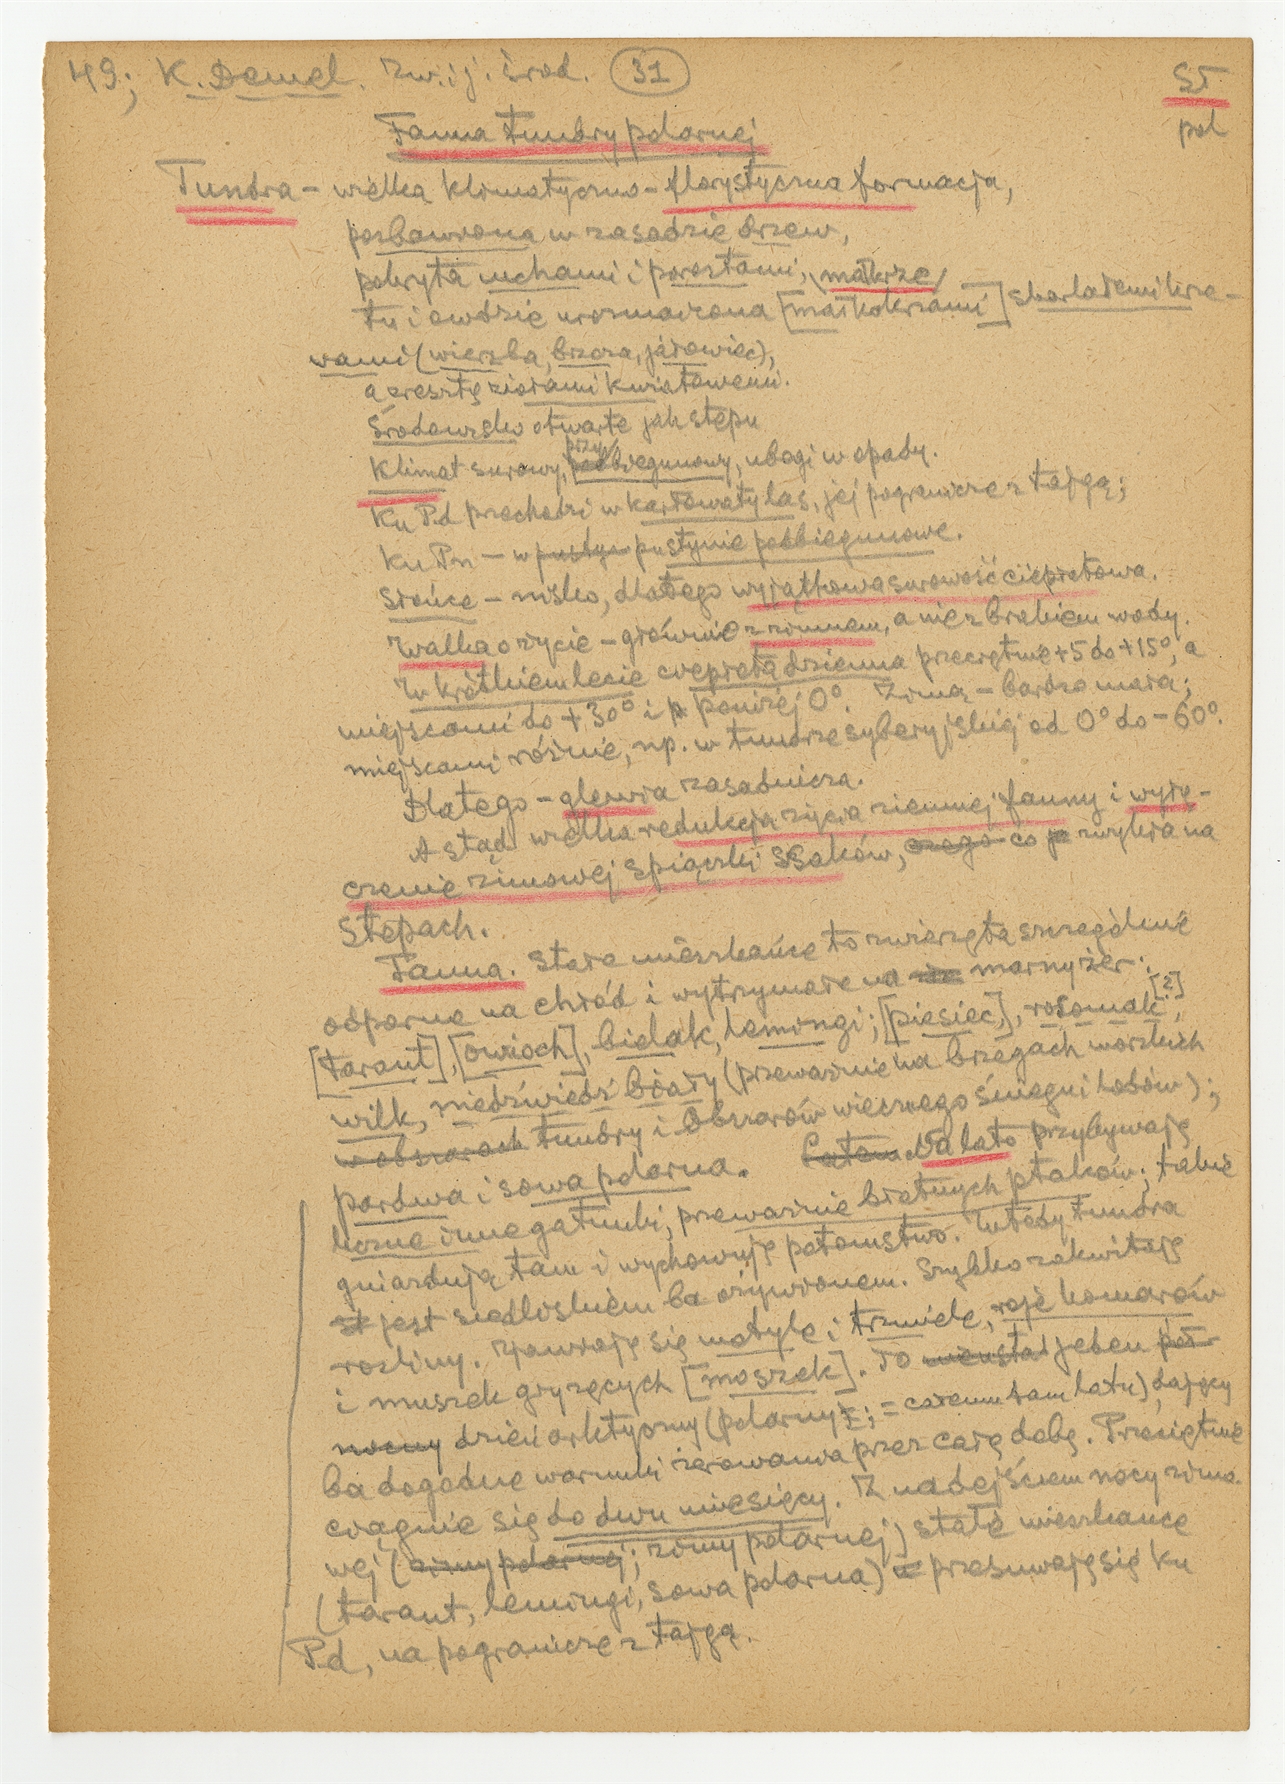 49; K. Demel. Zw. i j. środ. (31) ST
pol
Fauna tundry polarnej
Tundra – wielka klimatyczno-florystyczna formacja,
pozbawiona w zasadzie drzew,
pokryta mchami i porostami, małkrze/
tu i owdzie urozmaicona [małkokrzami] skarlałemi krze-
wami (wierzba, brzoza, jałowiec),
a zresztą ziołami kwiatowemi.
Środowisko otwarte jak stepu
Klimat surowy, podbiegunowy, przy/ ubogi w opady.
Ku Pd przechodzi w karłowaty las, jej pogranicze z tajgą;
Ku Pn – w pustyn pustynie podbiegunowe.
Słońce – nisko, dlatego wyjątkowa surowość cieplotowa.
Walka o życie – głównie z zimnem, a nie z brakiem wody.
W krótkiem lecie cieplota dzienna przeciętnie +5 do +15°, a
miejscami do +30° i p poniżej 0°. Zimą – bardzo mała;
miejscami różnie, np. w tundrze syberyjskiej od 0° do -60°.
Dlatego – glewia zasadnicza.
A stąd wielka redukcja życia ziemnej fauny i wyłą-
czenie zimowej śpiączki ssaków, czego co je zwykła na
stepach.
Fauna. Stałe mieszkańce to zwierzęta szczególnie
odporne na chłód i wytrzymałe na marny żer:
[tarant], [owioch], bielak, lemingi; [piesiec,], rosomak [?],
wilk, niedźwiedź biały (przeważnie na brzegach morskich
w obszarach tundry i obszarów wiecznego śniegu i lodów);
pardwa i sowa polarna. Latem Na lato przybywają
liczne inne gatunki, przeważnie brzetnych ptaków; takie
gniazdują tam i wychowują potomstwo. Wtedy tundra
st jest siedliskiem ba ożywionem. Szybko zakwitają
rośliny. Zjawiają się motyle i trzmiele, roje komarów
i muszek gryzących [moszek]. To nieustał jeden pół-
nocny dzień arktyczny (polarny; = całemu tam latu), dający
ba dogodne warunki żerowania przez całą dobę. Przeciętnie
ciągnie się do dwu miesięcy. Z nadejściem nocy zimo-
wej (zimy polarnej; zimy polarnej) stałe mieszkańce
(tarant, lemingi, sowa polarna) z przesuwają się ku
Pd, na pogranicze z tajgą.